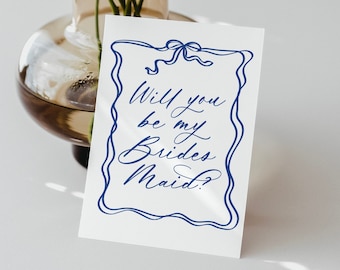 Will you
be my
Brides
Maid?